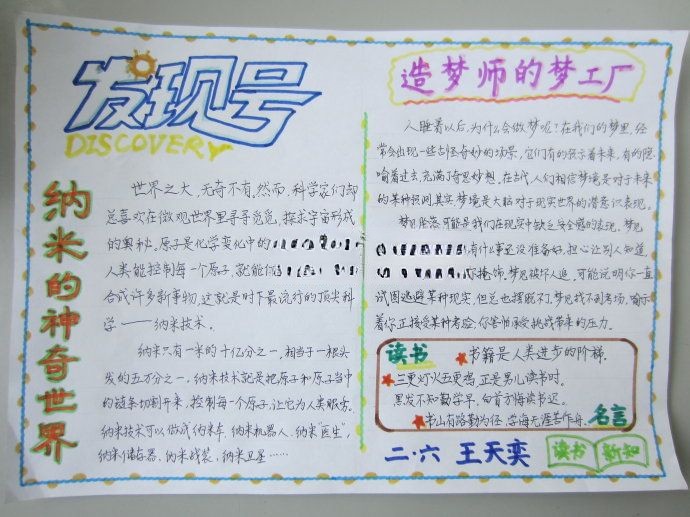 发现号
DISCOVERY
纳米的神奇世界
世界之大,无奇不有。然而,科学家们却
总喜欢在微观世界里寻寻觅觅,探求宇宙形成
的奥秘。原子是化学变化中的
人类能控制每一个原子,就能
合成许多新事物,这就是时下最流行的顶尖科
学——纳米技术。
纳米只有一米的十亿分之一,相当于一根头
发的五万分之一。纳米技术就是把原子和原子当中
的链条切割开来,控制每一个原子,让它为人类服务。
纳米技术可以做成纳米车、纳米机器人、纳米"医生"、
纳米储存器、纳米战装、纳米卫星……
造梦师的梦工厂
人睡着以后,为什么会做梦呢?在我们的梦里,经
常会出现一些古怪奇妙的场景,它们有的预示着未来,有的隐
喻着过去,充满了奇思妙想。在古代,人们相信梦境是对于未来
的某种预测,其实,梦境是大脑对于现实世界的潜意识表现。
梦见坠落,可能是我们在现实中缺乏安全感的表现,梦见
有什么事还没准备好,担心让别人知道,
你掩饰。梦见被坏人追,可能说明你一直
试图逃避某种现实,但总也摆脱不了。梦见找不到考场,暗示
着你正接受某种考验,你害怕承受挑战带来的压力。
读书
书籍是人类进步的阶梯。
三更灯火五更鸡,正是男儿读书时。
黑发不知勤学早,白首方悔读书迟。
书山有路勤为径,学海无涯苦作舟。
名言
二·六 王天奕
读书 新知